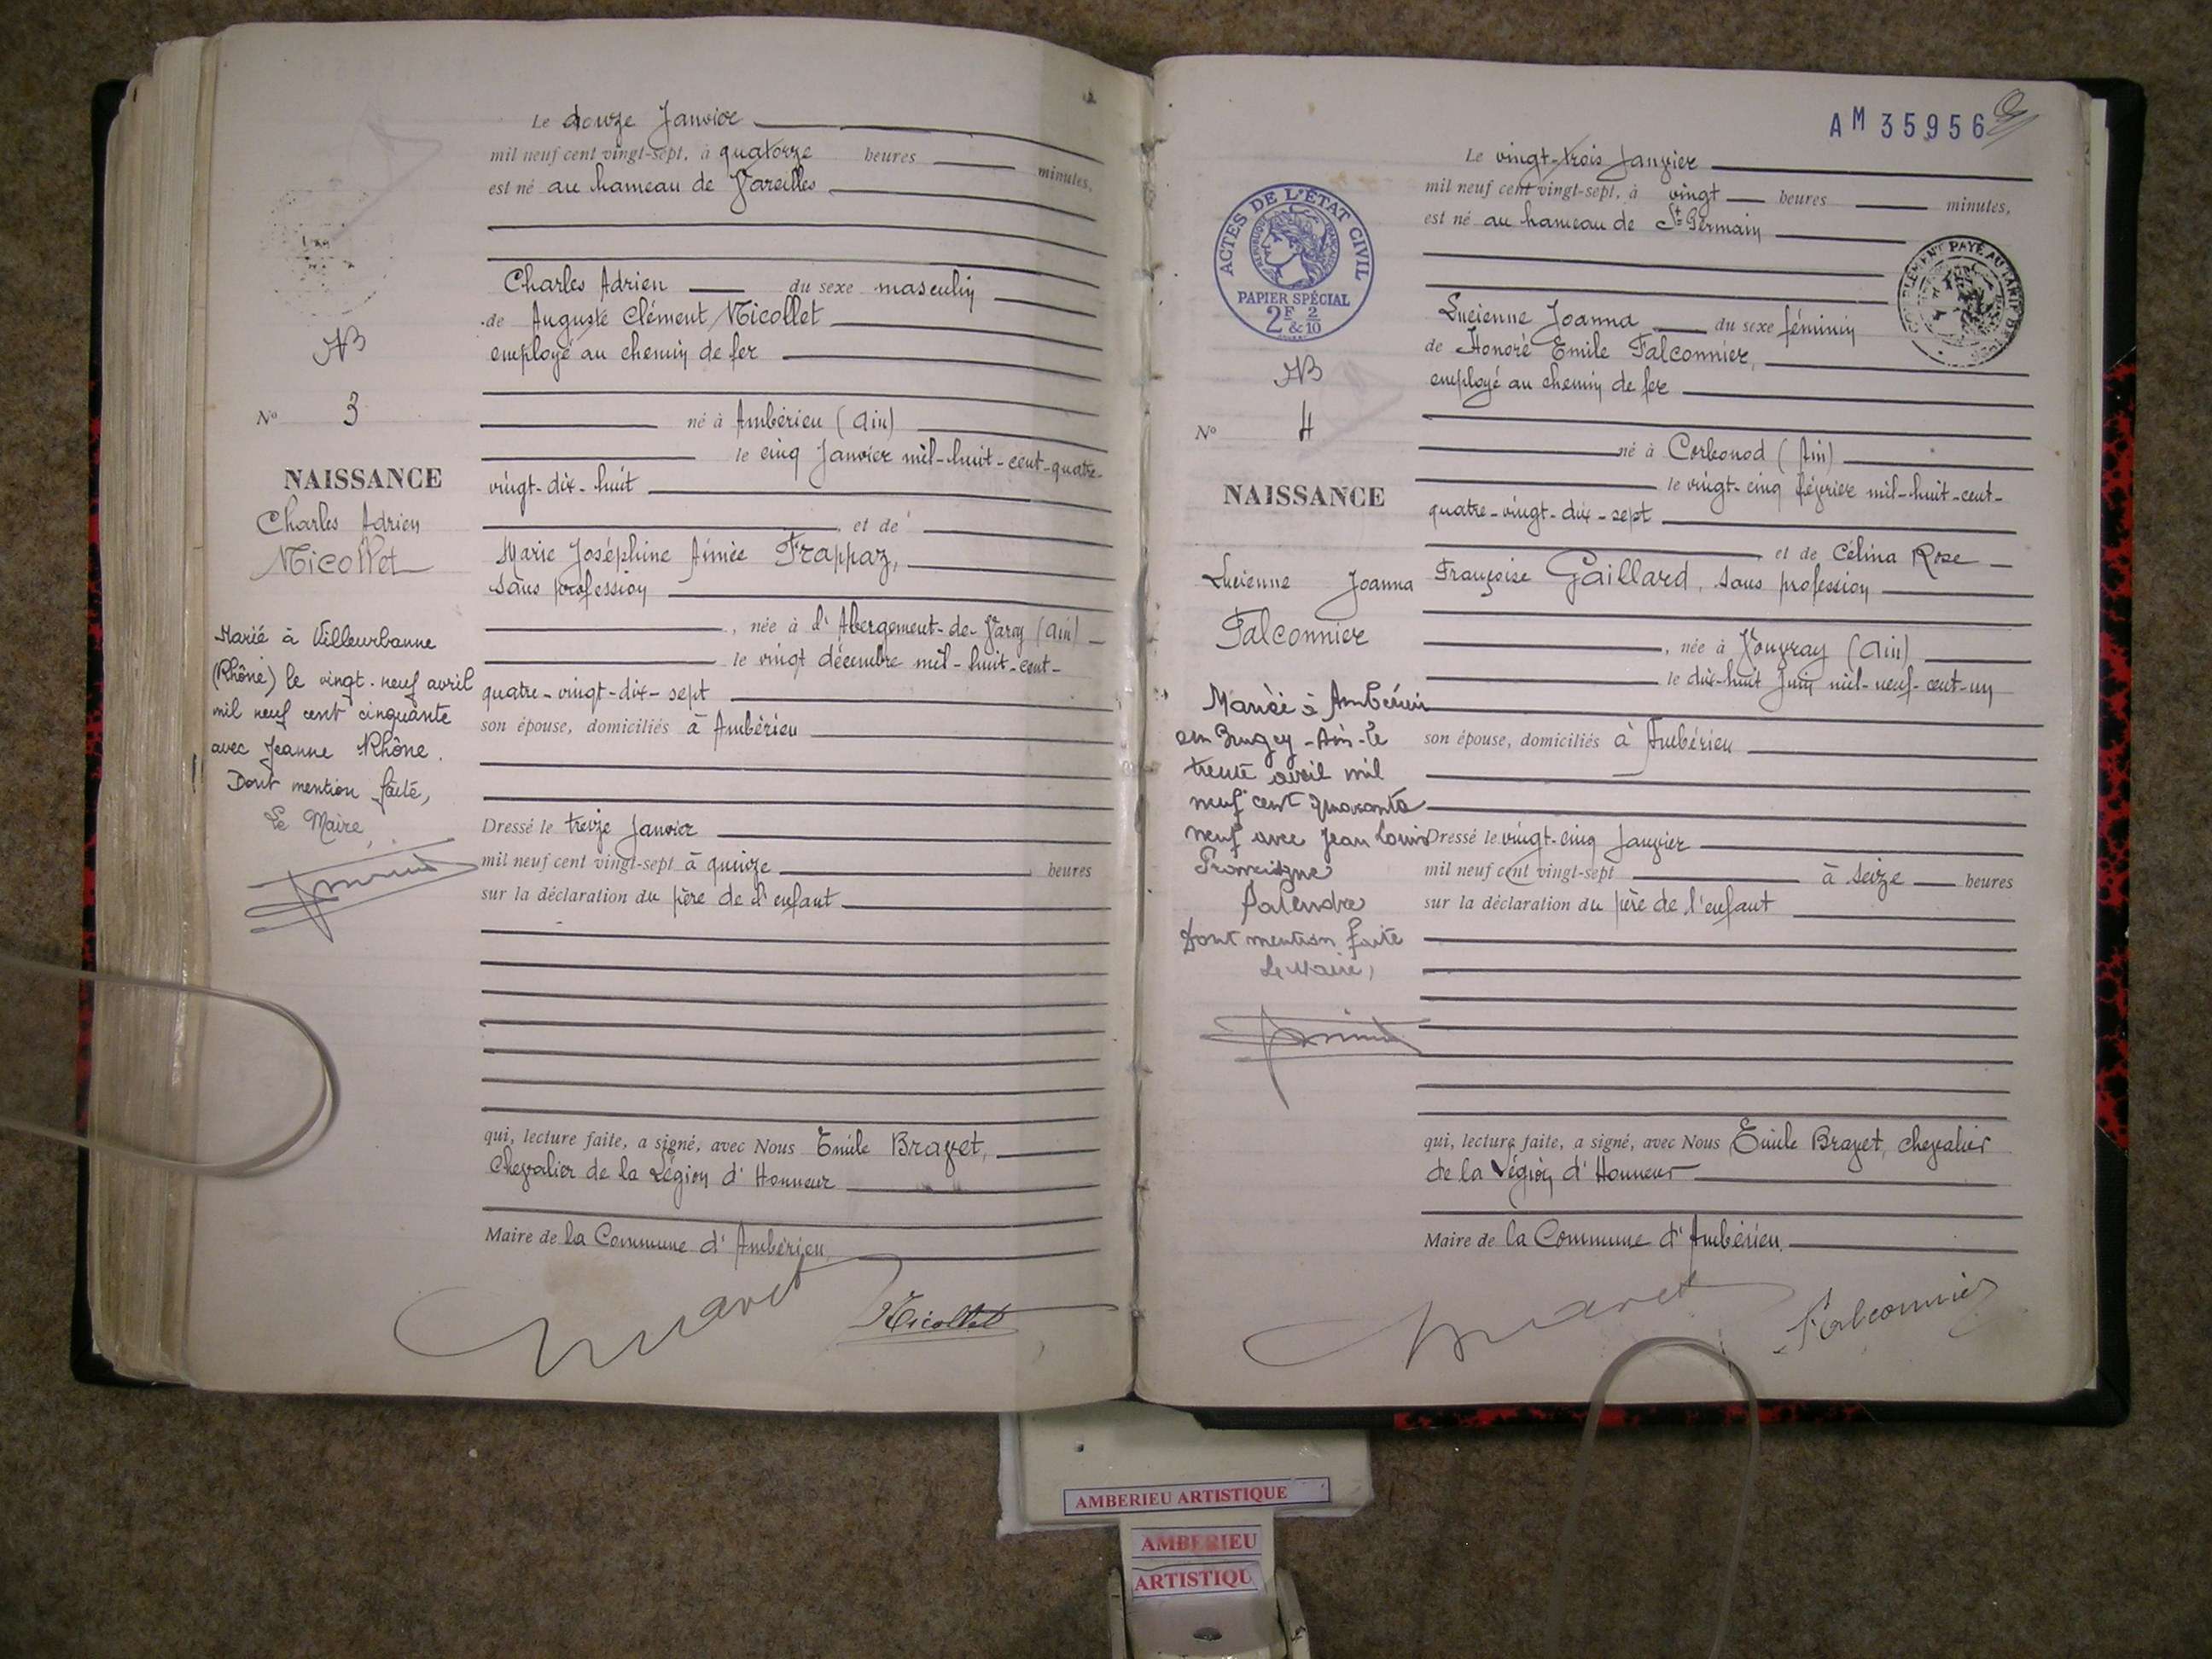 Le douze Janvier
mil neuf cent vingt-sept, à quatorze heures minutes,
est né au hameau de Vareilles
Charles Adrien du sexe masculin
de Auguste Clément Nicollet
employé au chemin de fer
né à Ambérieu (Ain)
le cinq Janvier mil-huit-cent-quatre-
vingt-dix-huit
et de
Marie Joséphine Aimée Frappaz,
sans profession
, née à l'Abergement-de-Varey (Ain)
le vingt décembre mil-huit-cent-
quatre-vingt-dix-sept
son épouse, domiciliés à Ambérieu
Dressé le treize Janvier
mil neuf cent vingt-sept à quinze heures
sur la déclaration du père de l'enfant
qui, lecture faite, a signé, avec Nous Emile Bravet,
Chevalier de la Légion d'Honneur
Maire de la Commune d'Ambérieu
Bravet
Nicollet
NB
N° 3
NAISSANCE
Charles Adrien
Nicollet
Marié à Villeurbanne
(Rhône) le vingt-neuf avril
mil neuf cent cinquante
avec Jeanne Rhône.
Dont mention faite,
Le Maire,
AM 35956
Le vingt-trois Janvier
mil neuf cent vingt-sept, à vingt heures minutes,
est né au hameau de St Germain
Lucienne Joanna du sexe féminin
de Honoré Emile Falconnier,
employé au chemin de fer
né à Corbonod (Ain)
le vingt-cinq février mil-huit-cent-
quatre-vingt-dix-sept
et de Célina Rose
Françoise Gaillard, sans profession
, née à Vouvray (Ain)
le dix-huit Juin mil-neuf-cent-un
son épouse, domiciliés à Ambérieu
Dressé le vingt-cinq Janvier
mil neuf cent vingt-sept à seize heures
sur la déclaration du père de l'enfant
qui, lecture faite, a signé, avec Nous Emile Bravet, chevalier
de la Légion d'Honneur
Maire de la Commune d'Ambérieu.
Bravet
Falconnier
ACTES DE L'ÉTAT CIVIL
RÉPUBLIQUE FRANÇAISE
PAPIER SPÉCIAL
2F & 2/10
NB
N° 4
NAISSANCE
Lucienne Joanna
Falconnier
Mariée à Ambérieu
en Bugey - Ain - le
trente avril mil
neuf cent quarante
neuf avec Jean Louis
Françisque
Palendre
Dont mention faite
Le Maire,
AMBERIEU ARTISTIQUE
AMBERIEU
ARTISTIQU